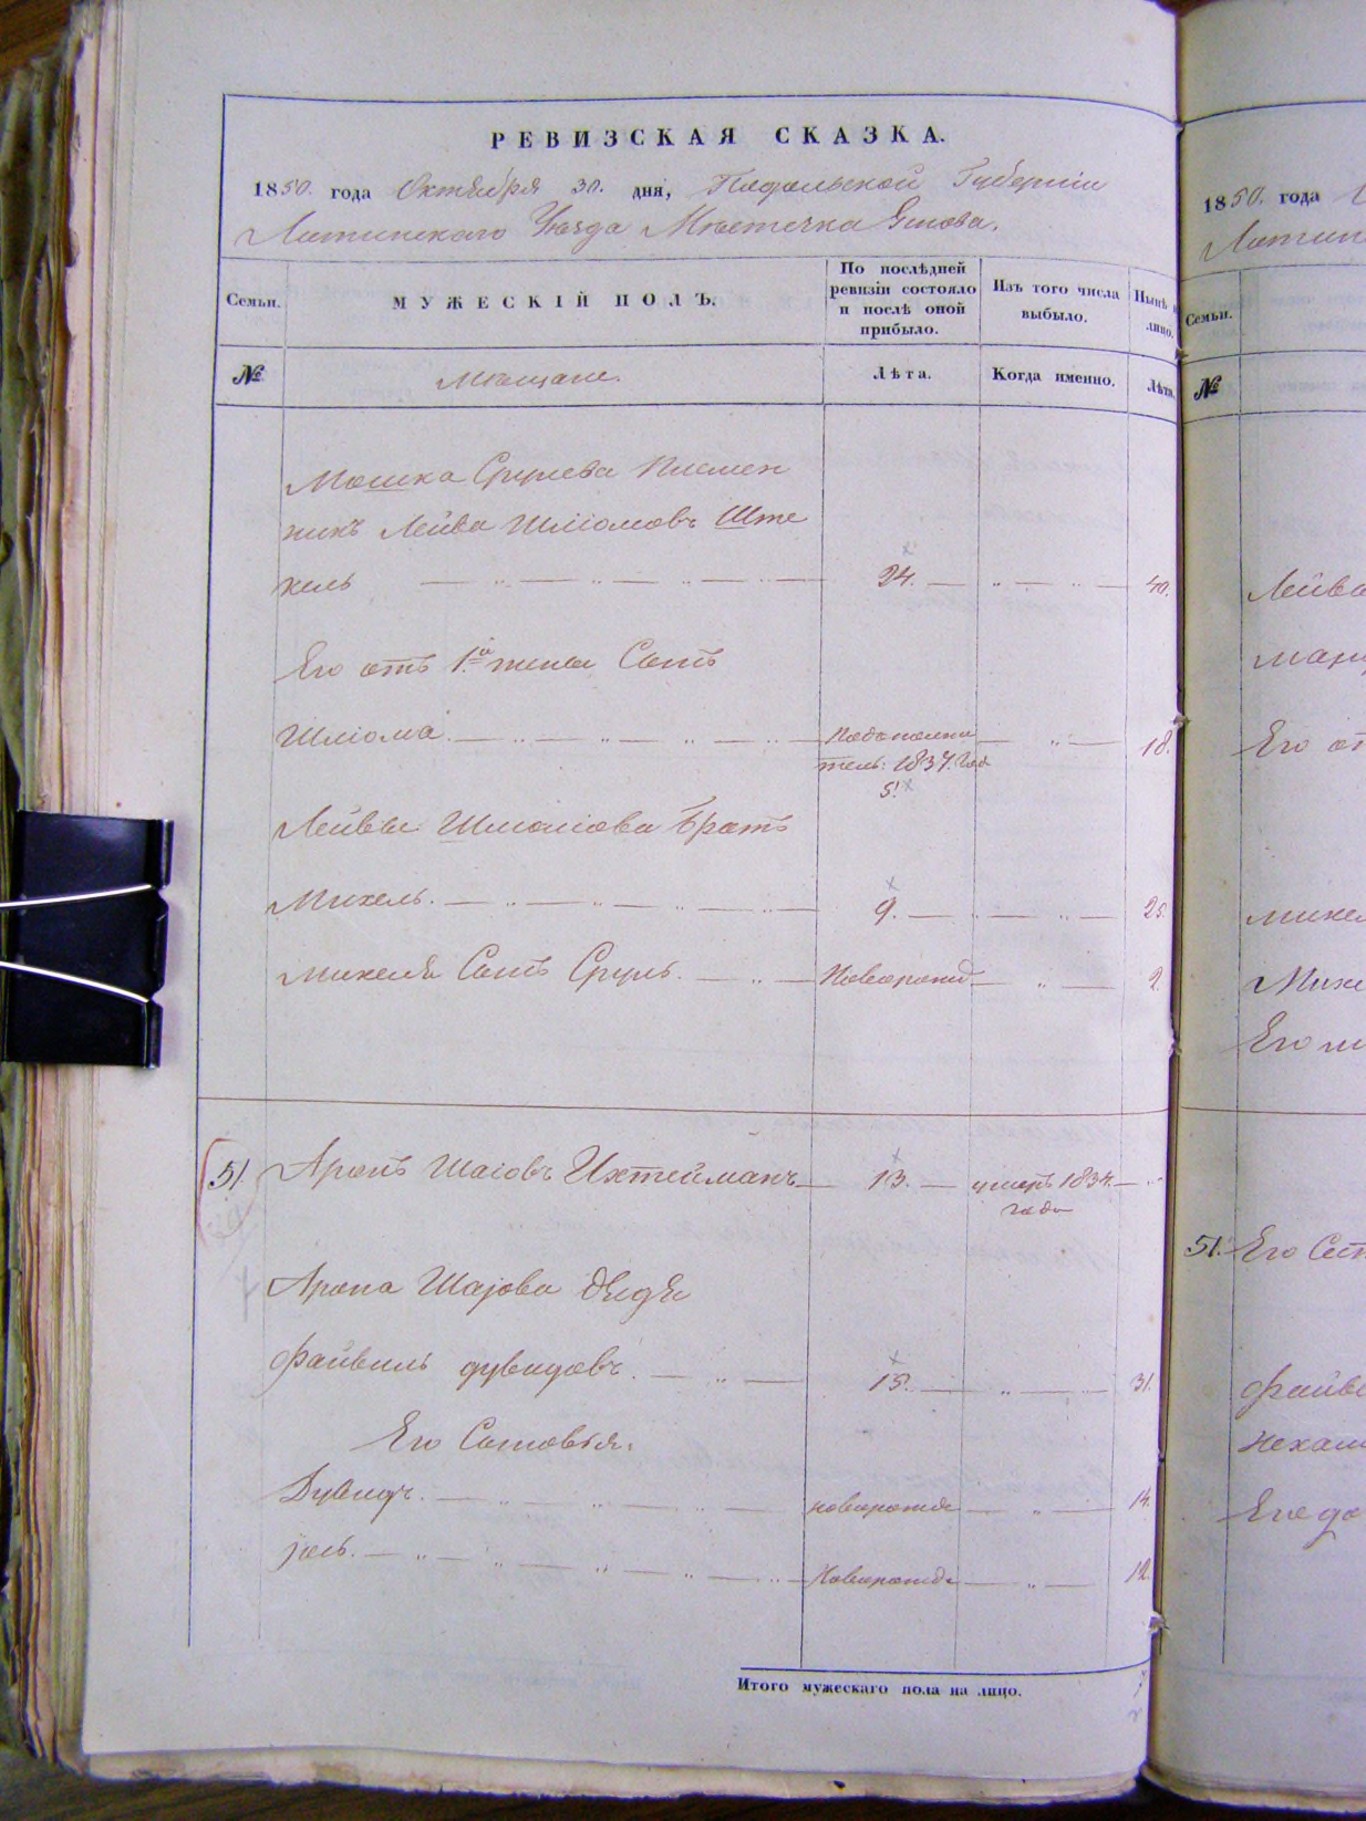 РЕВИЗСКАЯ СКАЗКА.
1850. года Октября 30. дня, Подольской Губерніи
Литинскаго Уѣзда Мѣстечка Янова.
Семьи.
МУЖЕСКІЙ ПОЛЪ.
По послѣдней
ревизіи состояло
и послѣ оной
прибыло.
Изъ того числа
выбыло.
Нынѣ
лицо.
№
Мѣщане.
Лѣта.
Когда именно.
Лѣта.
Мошка Срулева племен
никъ Лейба Шліомовъ Ште
кель 24. 40.
Его отъ 1.й жены Сынъ
Шліома. 18.
1837. года
5.
Лейбы Шліомова Братъ
Михель. 9. 25.
Михеля Сынъ Сруль. Новорожд 2.
51 Аронъ Шаіовъ Ихтейманъ 13. умеръ 1834.
года
Арона Шаіова дядя
Файвиль дувидовъ. 15. 31.
Его Сыновья.
Дувидъ. новорожде 14.
Іось. Новорожде 12.
Итого мужескаго пола на лицо.
1850. года
Литин
Семьи.
№
Лейба
Его от
михел
Михе
51. Его Сест
файве